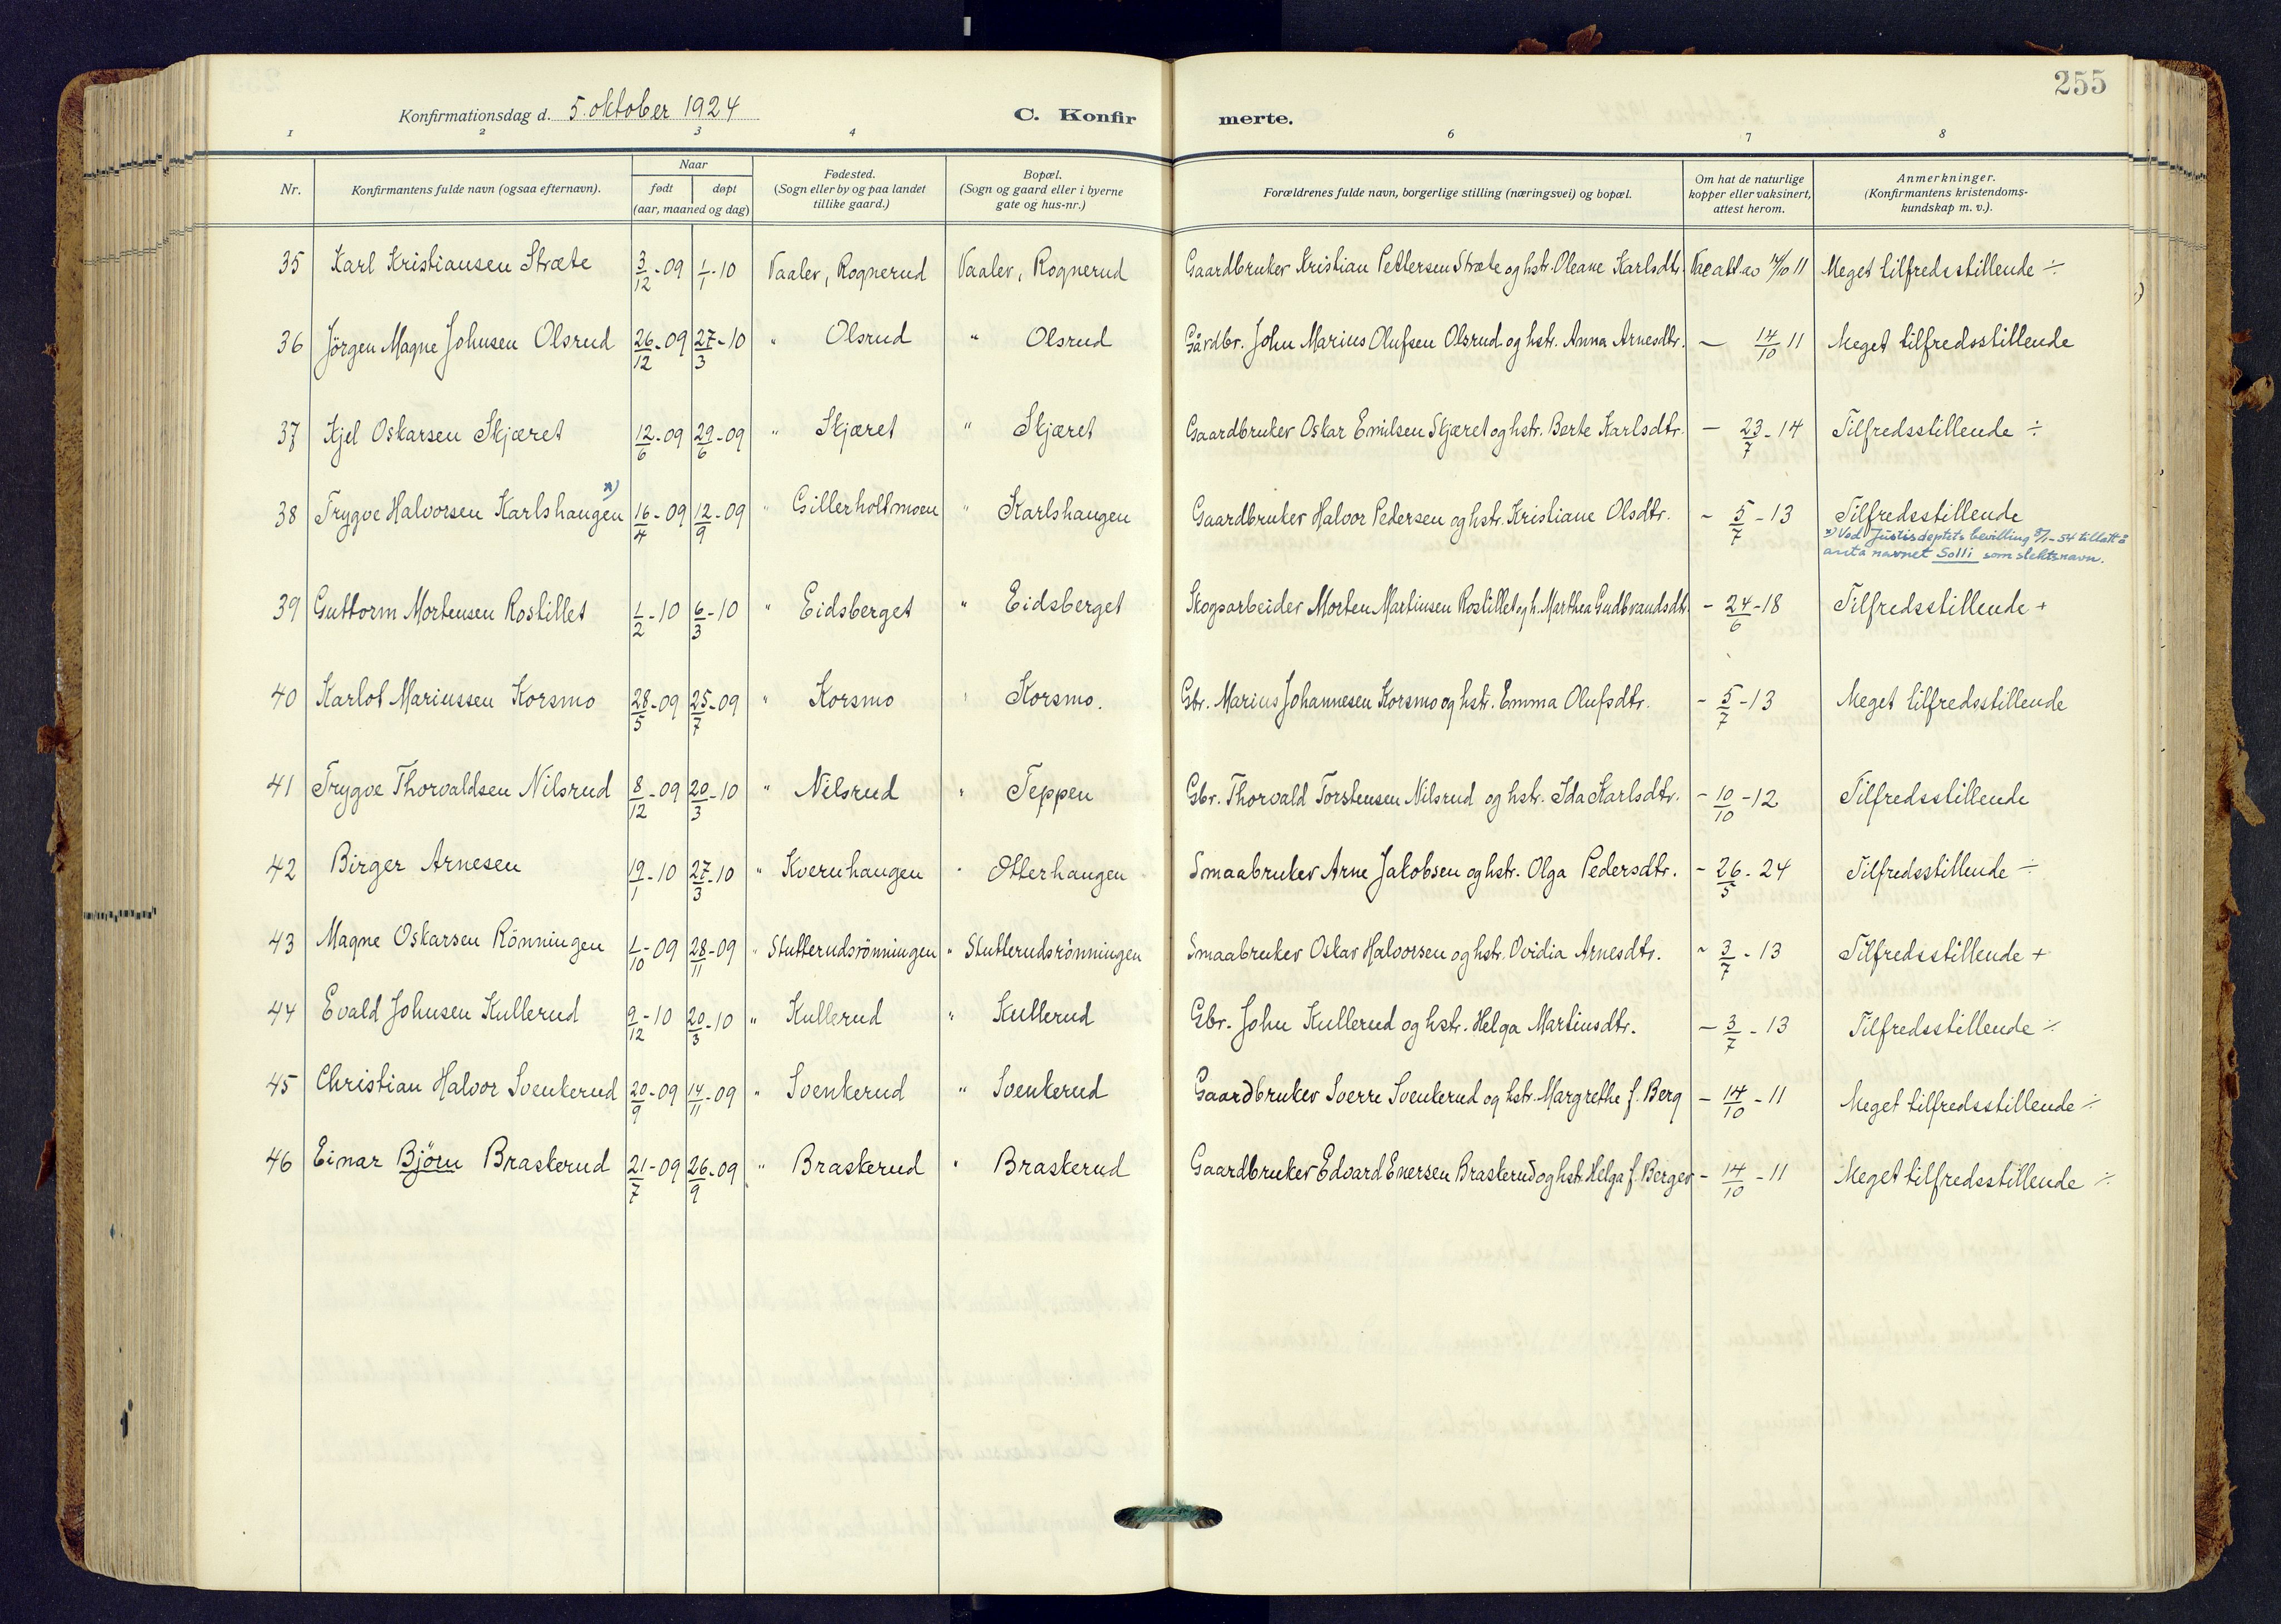 255
Konfirmationsdag d. 5. oktober 1924
C. Konfir merte.
1 2 3 4 6 7 8
Nr. | Konfirmantens fulde navn (ogsaa efternavn). | Naar født døpt (aar, maaned og dag) | Fødested. (Sogn eller by og paa landet tillike gaard.) | Bopæl. (Sogn og gaard eller i byerne gate og hus-nr.) | Forældrenes fulde navn, borgerlige stilling (næringsvei) og bopæl. | Om hat de naturlige kopper eller vaksinert, attest herom. | Anmerkninger. (Konfirmantens kristendoms- kundskap m. v.).
35 Karl Kristiansen Stræte 3/12-09 1/1-10 Vaaler, Rognerud Vaaler, Rognerud Gaardbruker Kristian Pettersen Stræte og hstr. Oleane Karlsdtr. Vac att. av 14/10 11 Meget tilfredsstillende ÷
36 Jörgen Magne Johnsen Olsrud 26/12-09 27/3-10 " Olsrud " Olsrud Gårdbr. John Marius Olufsen Olsrud og hstr. Anna Arnesdtr. — 14/10 11 Meget tilfredsstillende
37 Kjel Oskarsen Skjæret 12/6-09 29/6-09 " Skjæret " Skjæret Gaardbruker Oskar Emilsen Skjæret og hstr. Berte Karlsdtr. — 23/7-14 Tilfredsstillende ÷
38 Trygve Halvorsen Karlshaugen x) 16/4-09 12/9-09 " Gillerholtmoen " Karlshaugen Gaardbruker Halvor Pedersen og hstr. Kristiane Olsdtr. - 5/7-13 Tilfredsstillende
x) Ved Justisdeptets bevilling -54 tillatt å
anta navnet Solli som slektsnavn.
39 Guttorm Mortensen Rostillet 1/2-10 6/3-10 " Eidsberget " Eidsberget Skogsarbeider Morten Martinsen Rostillet og h. Marthea Gudbrandsdtr - 24/6-18 Tilfredsstillende +
40 Karlot Mariussen Korsmo 28/5-09 25/7-09 " Korsmo " Korsmo. Gbr. Marius Johannesen Korsmo og hstr. Emma Olufsdtr. - 5/7-13 Meget tilfredsstillende
41 Trygve Thorvaldsen Nilsrud 8/12-09 20/3-10 " Nilsrud " Teppen Gbr. Thorvald Torstensen Nilsrud og hstr. Ida Karlsdtr. - 10/10-12 Tilfredsstillende
42 Birger Arnesen 19/1-10 27/3-10 " Kvernhaugen " Otterhaugen Smaabruker Arne Jakobsen og hstr. Olga Pedersdtr. - 26/5-24 Tilfredsstillende ÷
43 Magne Oskarsen Rönningen 1/10-09 28/11-09 " Stutterudsrönningen " Stutterudsrönningen Smaabruker Oskar Halvorsen og hstr. Ovidia Arnesdtr. - 3/7-13 Tilfredsstillende +
44 Evald Johnsen Kullerud 9/12-10 20/3-10 " Kullerud " Kullerud Gbr. John Kullerud og hstr. Helga Martinsdtr. - 3/7-13 Tilfredsstillende ÷
45 Christian Halvor Svenkerud 20/9-09 14/11-09 " Svenkerud " Svenkerud Gaardbruker Sverre Svenkerud og hstr. Margrethe f. Berg - 14/10-11 Meget tilfredsstillende ÷
46 Einar Björn Braskerud 21/7-09 26/9-09 " Braskerud " Braskerud Gaardbruker Edvard Enersen Braskerud og hstr. Helga f. Berger - 14/10-11 Meget tilfredsstillende ÷